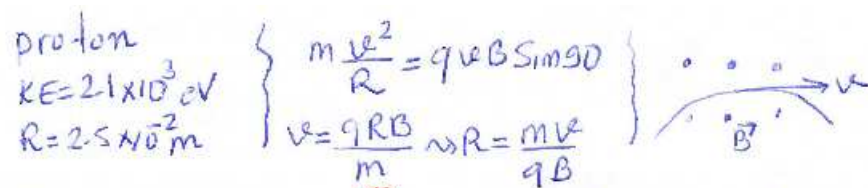 proton
KE=2.1×10³ eV
R=2.5×10⁻²m
m v²/R = qvB Sin90
v = qRB/m ⇝ R = mv/qB
v
B⃗